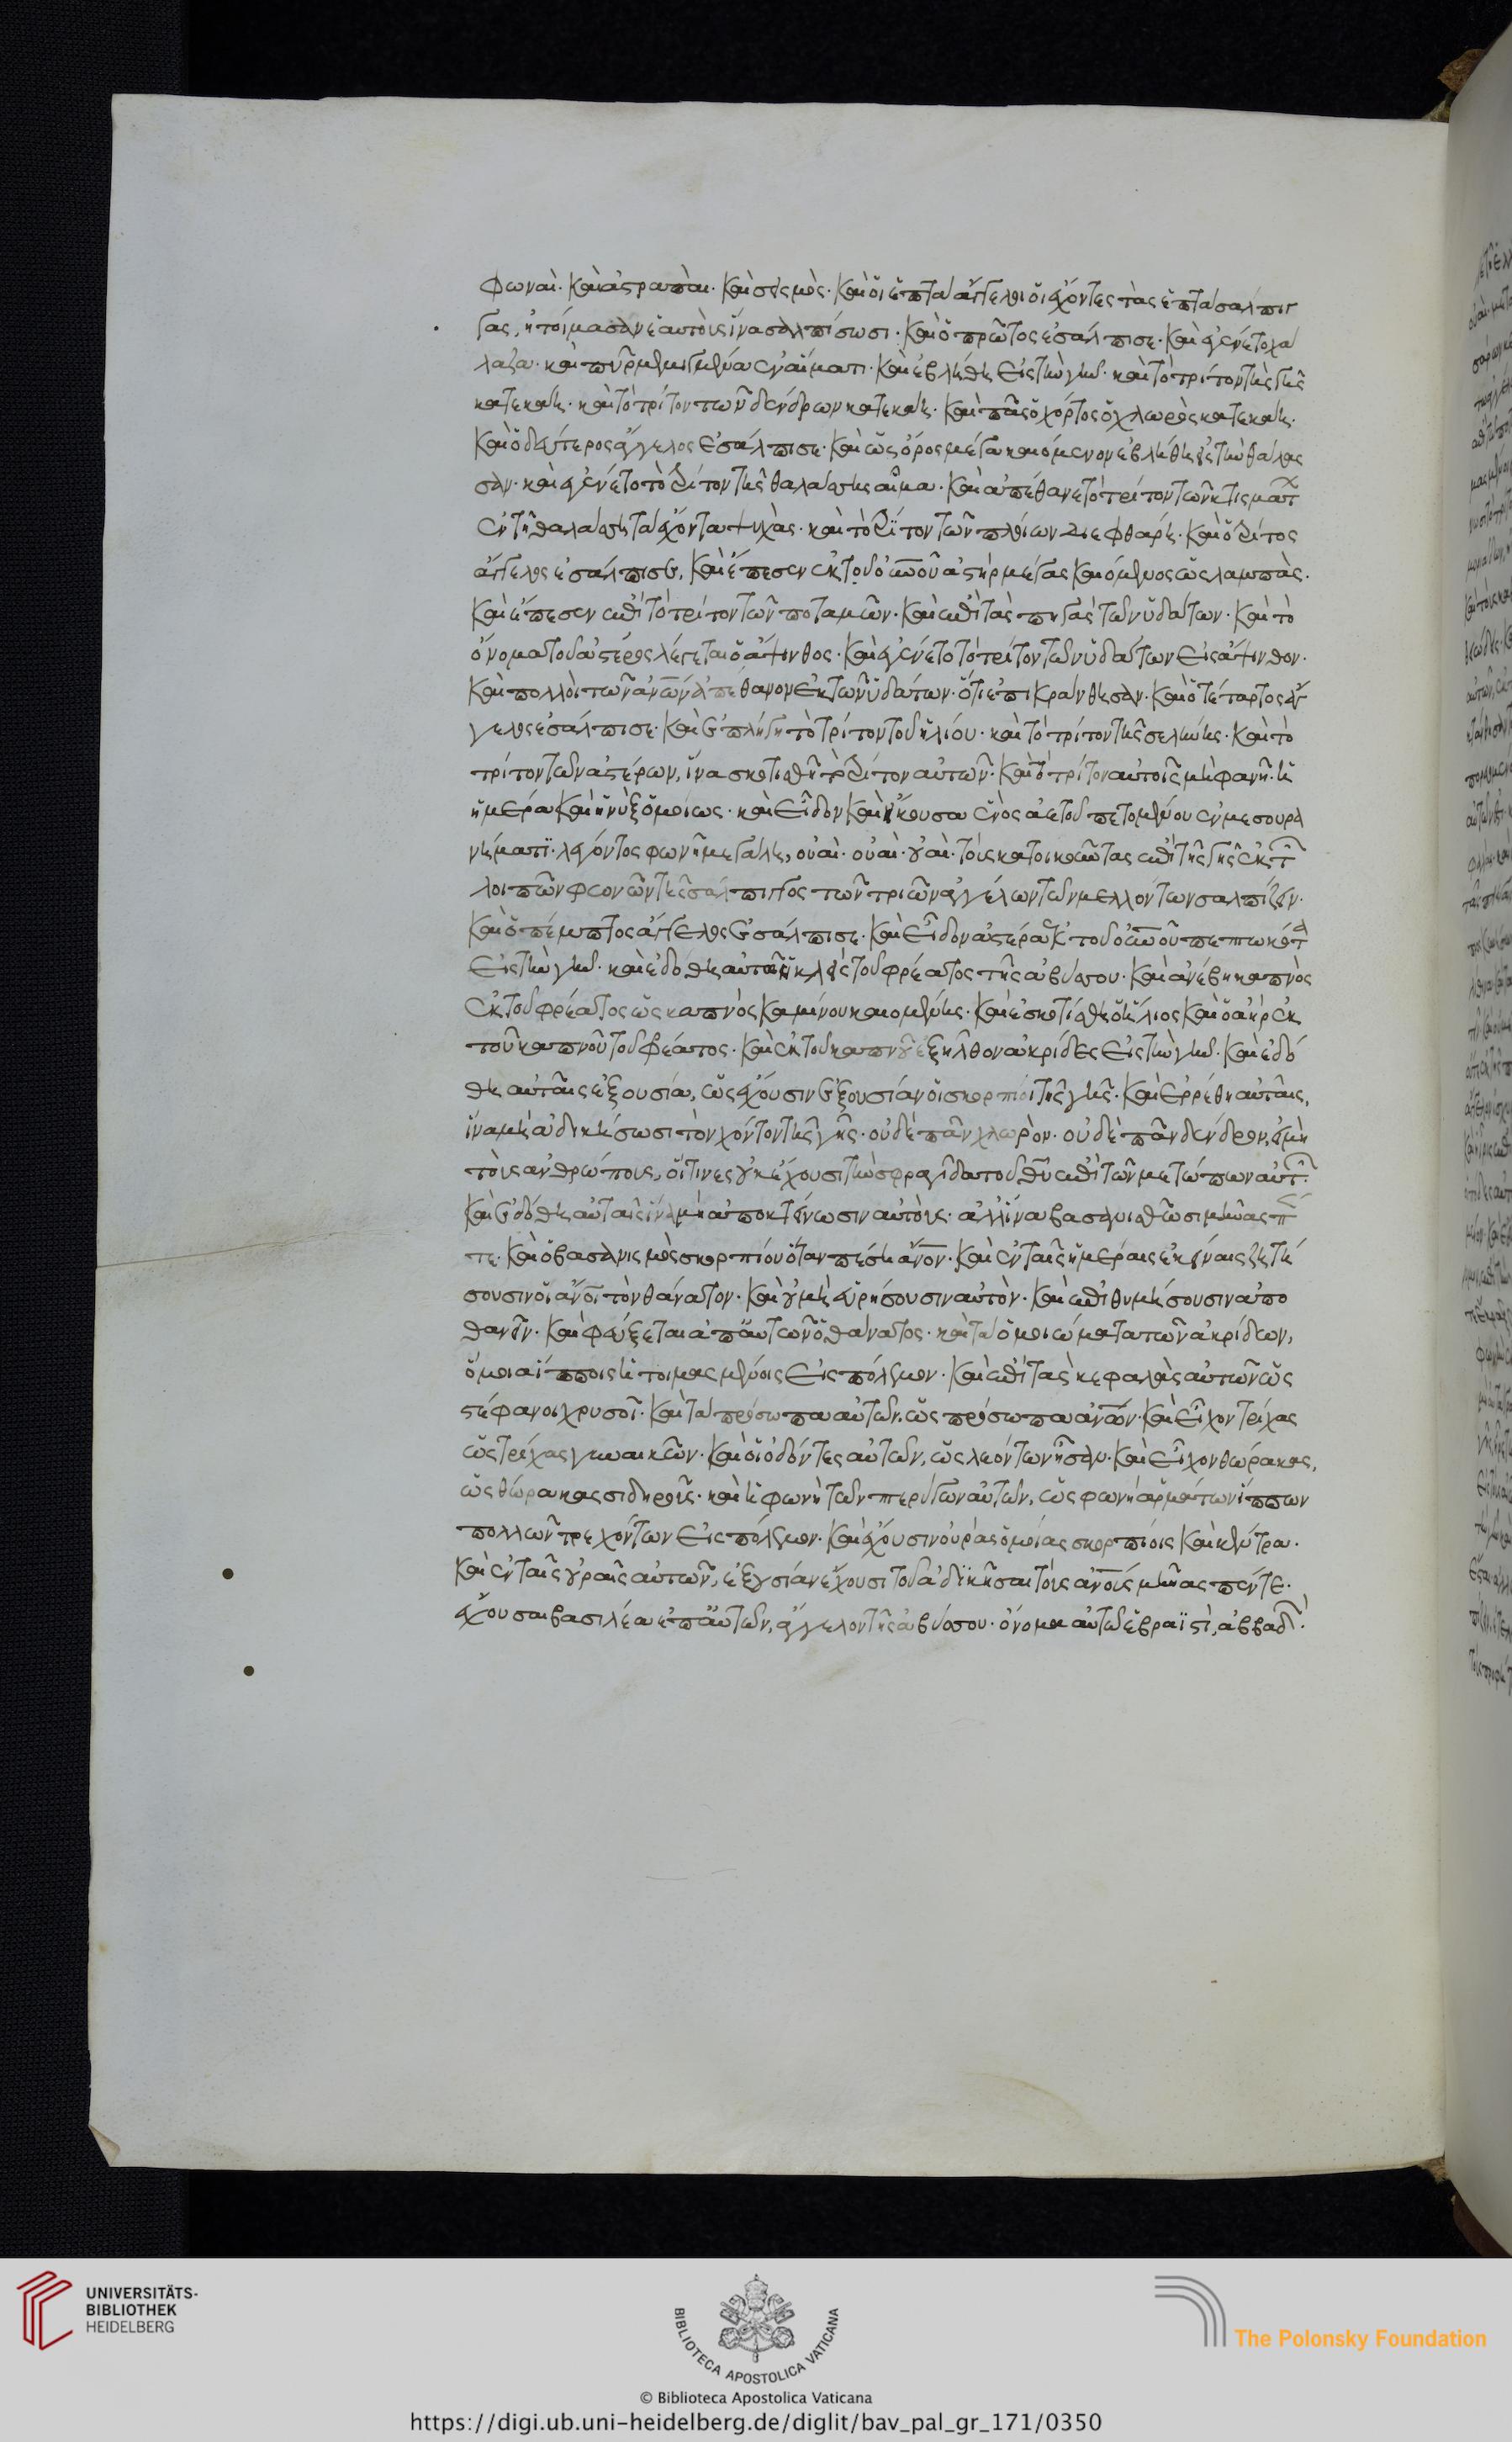 φωναὶ· καὶ ἀστραπαὶ· καὶ σεισμὸς· καὶ ὅι ἕπτα ἄγγελοι ὅι ἔχοντες τὰς ἕπτα σαλπιγ
γας, ἡτοίμασαν ἑαυτοὺς ἵνα σαλπίσωσι· καὶ ὅ πρῶτος ἐσάλπισε· καὶ ἐγένετο χα
λαζα· καὶ πῦρ μεμιγμένα ἐν αἵματι· καὶ ἐβλήθη εἰς τὴν γῆν· καὶ τὸ τρίτον τῆς γῆς
κατεκάη· καὶ τὸ τρίτον τῶν δένδρων κατεκάη· καὶ πᾶς ὅ χόρτος ὅ χλωρὸς κατεκάη·
καὶ ὅ δεύτερος ἄγγελος ἐσάλπισε· καὶ ὥς ὄρος μέγα καιόμενον ἐβλήθη εἰς τὴν θάλας
σαν· καὶ ἐγένετο τὸ τρίτον τῆς θαλάσσης αἷμα· καὶ ἀπέθανε τὸ τρίτον τῶν κτισμάτ
ἐν τῇ θαλάσση τὰ ἔχοντα ψυχάς· καὶ τὸ τρίτον τῶν πλοίων διεφθάρη· καὶ ὅ τρίτος
ἄγγελος ἐσάλπισε, καὶ ἔπεσεν ἐκ τοῦ οὐνοῦ ἀστὴρ μέγας καιόμενος ὥς λαμπὰς·
καὶ ἔπεσεν ἐπὶ τὸ τρίτον τῶν ποταμῶν· καὶ ἐπὶ τὰς πηγὰς τῶν ὕδάτων· καὶ τὸ
ὄνομα τοῦ ἀστέρος λέγεται ὅ ἄψινθος· καὶ ἐγένετο τὸ τρίτον τῶν ὕδάτων εἰς ἄψινθον·
καὶ πολλοὶ τῶν ἀνῶν ἀπέθανον ἐκ τῶν ὕδάτων· ὅτι ἐπικράνθησαν· καὶ ὅ τέταρτος ἄγ
γελος ἐσάλπισε· καὶ ἐπλήγη τὸ τρίτον τοῦ ἡλίου· καὶ τὸ τρίτον τῆς σελήνης· καὶ τὸ
τρίτον τῶν ἀστέρων, ἵνα σκοτισθῇ τὸ τρίτον αὐτῶν· καὶ τὸ τρίτον αὐτοῖς μὴ φανῇ· ἡ
ἡμέρα καὶ ἡ νὺξ ὅμοίως· καὶ εἶδον καὶ ἤκουσα ἑνὸς ἀετοῦ πετομένου ἐν μεσουρα
νήματι· λέγοντος φωνῇ μεγάλη, οὐαὶ· οὐαὶ· οὐαὶ· τοῖς κατοικοῦντας ἐπὶ τῆς γῆς ἐκ τ
λοιπῶν φωνῶν τῆς σάλπιγγος τῶν τριῶν ἀγγέλων τῶν μελλόντων σαλπίζειν·
καὶ ὅ πέμπτος ἄγγελος ἐσάλπισε· καὶ εἶδον ἀστέρα ἐκ τοῦ οὐνοῦ πεπτωκότα
εἰς τὴν γῆν· καὶ ἐδόθη αὐτῷ ἡ κλεὶς τοῦ φρέατος τῆς ἀβύσσου· καὶ ἀνέβη καπνὸς
ἐκ τοῦ φρέατος ὥς καπνὸς καμίνου καιομένης· καὶ ἐσκοτίσθη ὅ ἥλιος καὶ ὅ ἀὴρ ἐκ
τοῦ καπνοῦ τοῦ φρέατος· καὶ ἐκ τοῦ καπνοῦ ἐξῆλθον ἀκρίδες εἰς τὴν γῆν· καὶ ἐδό
θη αὐταῖς ἐξουσία, ὥς ἔχουσιν ἐξουσίαν ὅι σκορπίοι τῆς γῆς· καὶ ἐρρέθη αὐταῖς,
ἵνα μὴ ἀδικήσωσι τὸν χόρτον τῆς γῆς· οὐδὲ πᾶν χλωρὸν· οὐδὲ πᾶν δένδρον, εἰ μὴ
τοὺς ἀνθρώπους, ὅιτινες οὐκ ἔχουσι τὴν σφραγίδα τοῦ θῦ ἐπὶ τῶν μετώπων αὐτ·
καὶ ἐδόθη αὐταῖς ἵνα μὴ ἀποκτείνωσιν αὐτοὺς· ἀλλ ἵνα βασανισθῶσι μῆνας πέ
τε· καὶ ὅ βασανισμὸς σκορπίου ὅταν πέση ἄνον· καὶ ἐν ταῖς ἡμέραις ἐκείναις ζητή
σουσιν ὅι ἄνοι τὸν θάνατον· καὶ οὐ μὴ εὑρήσουσιν αὐτὸν· καὶ ἐπιθυμήσουσιν ἀπο
θανεῖν· καὶ φεύξεται ἀπ αὐτῶν ὅ θάνατος· καὶ τὰ ὅμοιώματα τῶν ἀκρίδων,
ὅμοια ἵπποις ἡτοιμασμένοις εἰς πόλεμον· καὶ ἐπὶ τὰς κεφαλὰς αὐτῶν ὥς
στέφανοι χρυσοῖ· καὶ τὰ πρόσωπα αὐτῶν, ὥς πρόσωπα ἀνῶν· καὶ εἶχον τρίχας
ὥς τρίχας γυναικῶν· καὶ ὅι ὀδόντες αὐτῶν, ὥς λεόντων ἦσαν· καὶ εἶχον θώρακας,
ὥς θώρακας σιδηροῦς· καὶ ἡ φωνὴ τῶν πτερύγων αὐτῶν, ὥς φωνὴ ἁρμάτων ἵππων
πολλῶν τρεχόντων εἰς πόλεμον· καὶ ἔχουσιν οὐρὰς ὅμοίας σκορπίοις καὶ κέντρα·
καὶ ἐν ταῖς οὐραῖς αὐτῶν, ἐξουσίαν ἔχουσι τοῦ ἀδϊκῆσαι τοὺς ἀνοὺς μῆνας πέντε·
ἔχουσαι βασιλέα ἐπ αὐτῶν, ἄγγελον τῆς ἀβύσσου· ὄνομα αὐτῷ ἑβραϊστὶ, ἀββαδ·
UNIVERSITÄTS-
BIBLIOTHEK
HEIDELBERG
BIBLIOTECA APOSTOLICA VATICANA
The Polonsky Foundation
© Biblioteca Apostolica Vaticana
https://digi.ub.uni-heidelberg.de/diglit/bav_pal_gr_171/0350